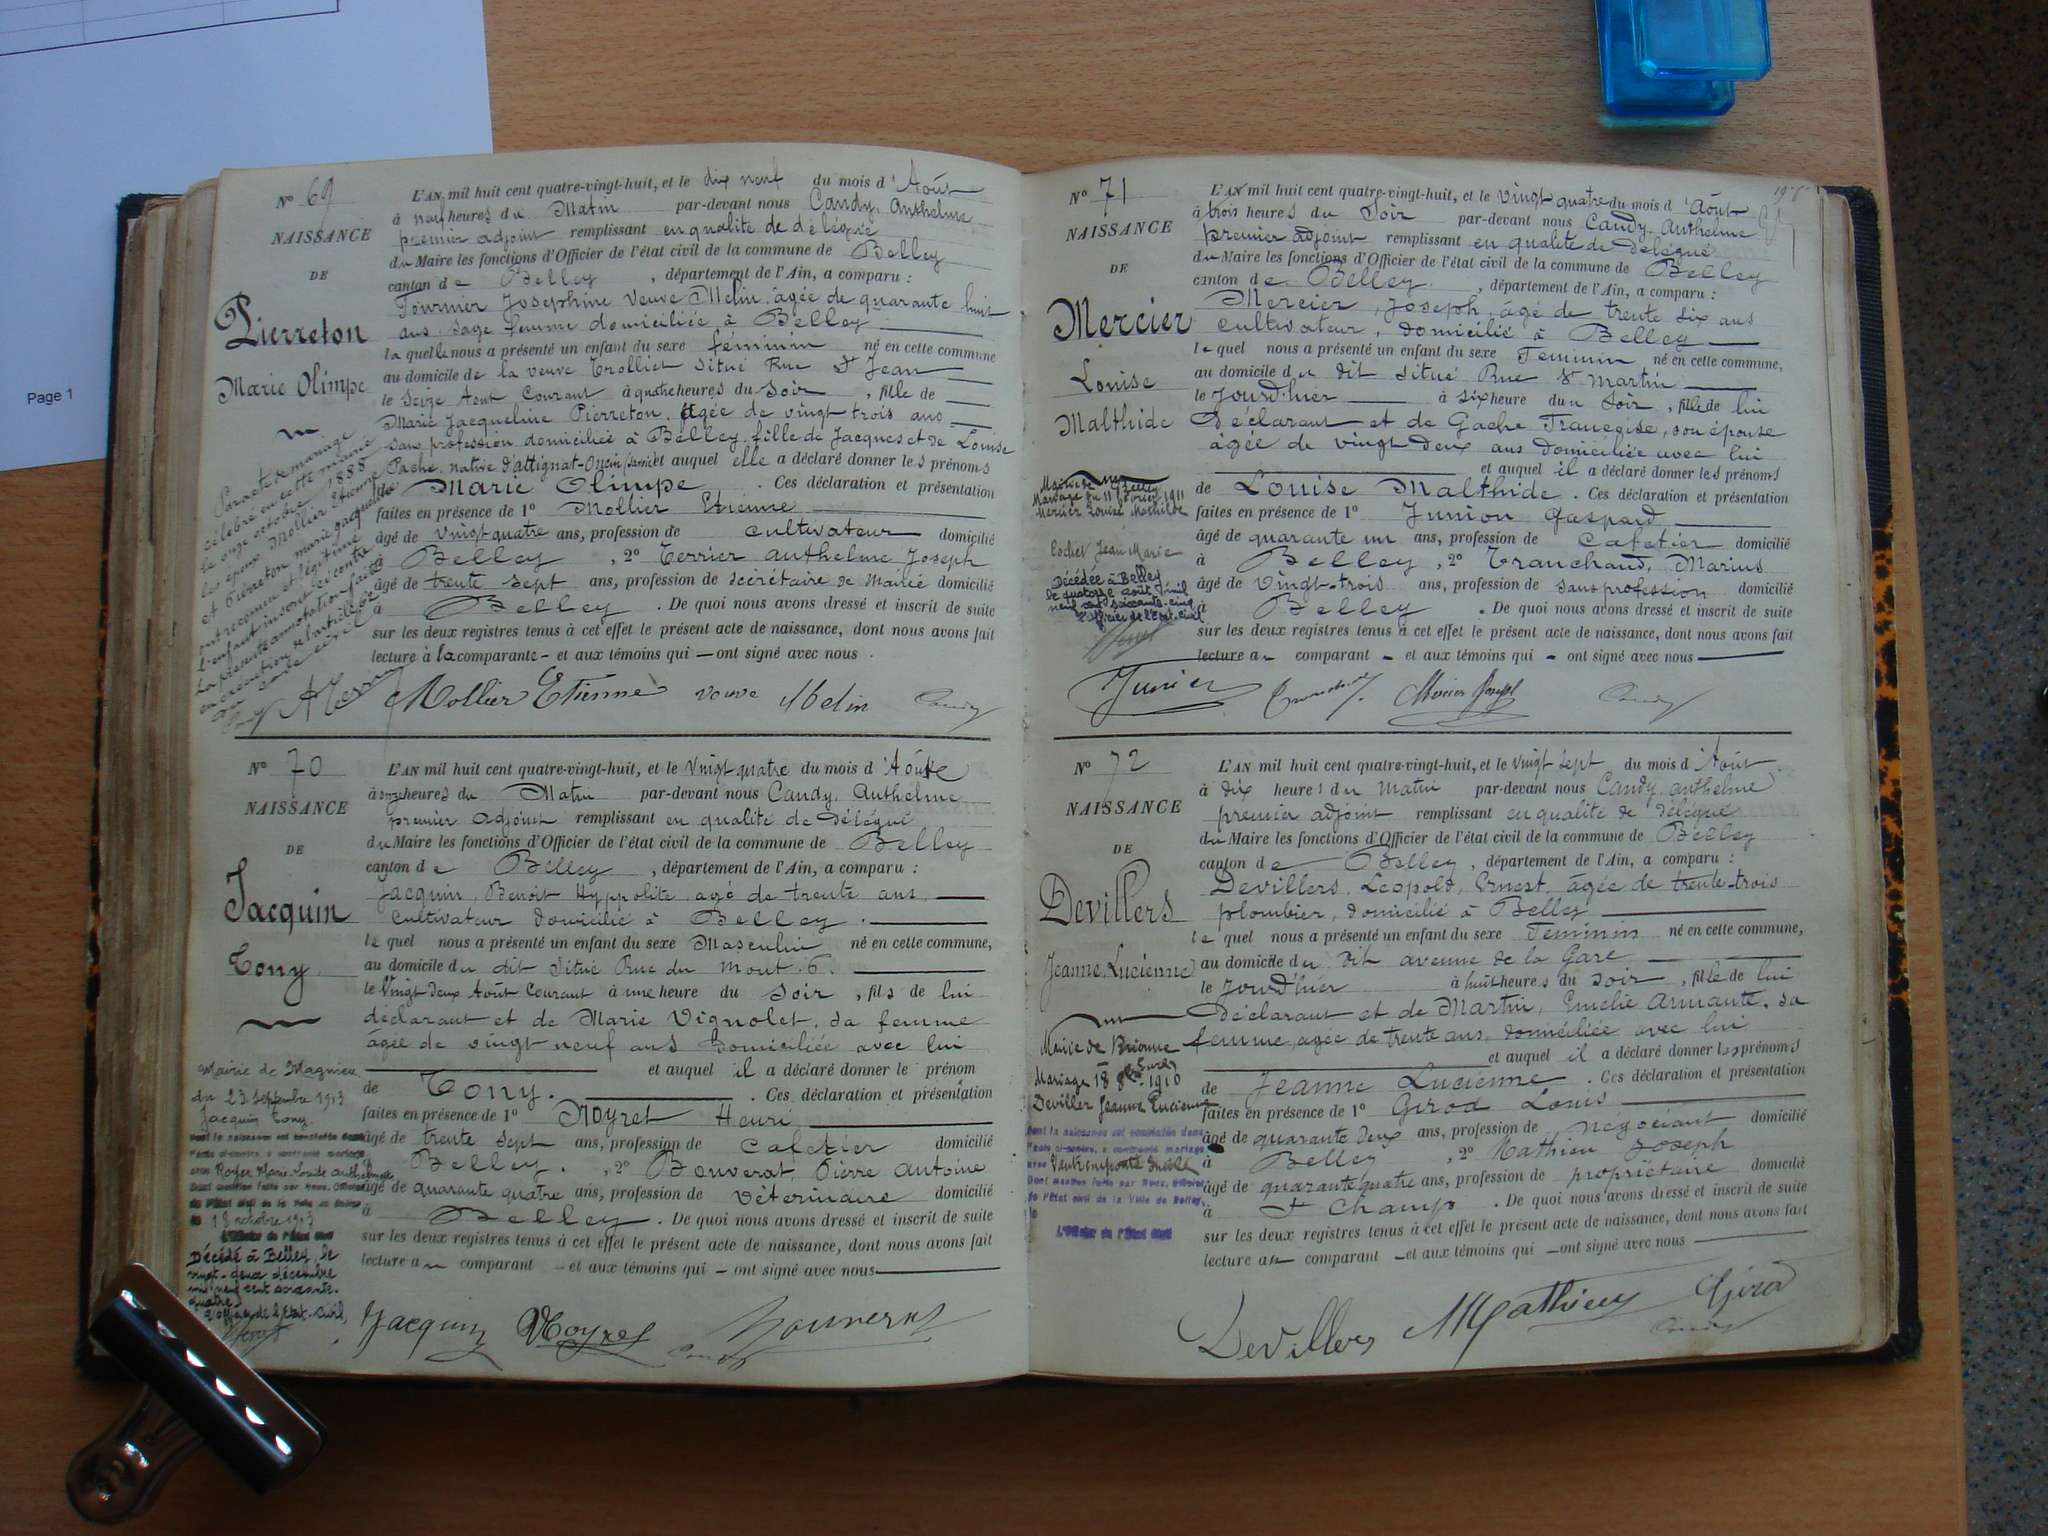 Page 1
N° 69
NAISSANCE
DE
Pierreton
Marie Olimpe
L'AN mil huit cent quatre-vingt-huit, et le dix neuf du mois d'Août
à neuf heures du Matin par-devant nous Candy, Anthelme
premier adjoint remplissant en qualité de délégué
du Maire les fonctions d'Officier de l'état civil de la commune de Belley
canton de Belley, département de l'Ain, a comparu :
Fournier Josephine Veuve Melin, âgée de quarante huit
ans, sage femme domiciliée à Belley
laquelle nous a présenté un enfant du sexe féminin né en cette commune
au domicile de la veuve Trolliet situé Rue St Jean
le Seize Aout Courant à quatre heures du Soir, fille de
Marie Jacqueline Pierreton, âgée de vingt trois ans
sans profession domiciliée à Belley, fille de Jacques et de Louise
Pache, native d'Attignat-Oncin (Savoie) et auquel elle a déclaré donner les prénoms
de Marie Olimpe. Ces déclaration et présentation
faites en présence de 1° Mollier Etienne
âgé de vingt quatre ans, profession de cultivateur domicilié
à Belley, 2° Terrier Anthelme Joseph
âgé de trente sept ans, profession de Secrétaire de Mairie domicilié
à Belley. De quoi nous avons dressé et inscrit de suite
sur les deux registres tenus à cet effet le présent acte de naissance, dont nous avons fait
lecture à la comparante - et aux témoins qui - ont signé avec nous.
Par acte de mariage
célébré en cette mairie
le onze octobre 1888
les époux Mollier Etienne
et Pierreton marie jacqueline
ont reconnu et légitimé
l'enfant inscrit ci contre
La présente annotation faite
en exécution de l'article 62
du code civil
Mollier Etienne veuve Melin Candy
N° 70
NAISSANCE
DE
Jacquin
Tony
L'AN mil huit cent quatre-vingt-huit, et le Vingt quatre du mois d'Août
à heures du Matin par-devant nous Candy, Anthelme
premier adjoint remplissant en qualité de Délégué
du Maire les fonctions d'Officier de l'état civil de la commune de Belley
canton de Belley, département de l'Ain, a comparu :
Jacquin, Benoit Hyppolite, agé de trente ans,
cultivateur domicilié à Belley.
lequel nous a présenté un enfant du sexe Masculin né en cette commune,
au domicile du dit Situé Rue du Mont 6.
le Vingt Deux Août Courant à une heure du Soir, fils de lui
déclarant et de Marie Vignolet, sa femme
âgée de vingt neuf ans Domiciliée avec lui
et auquel il a déclaré donner le prénom
de Tony. Ces déclaration et présentation
faites en présence de 1° Noyret Henri
âgé de trente sept ans, profession de Cafetier domicilié
Belley., 2° Bouverat, Pierre Antoine
âgé de quarante quatre ans, profession de Véterinaire domicilié
à Belley. De quoi nous avons dressé et inscrit de suite
sur les deux registres tenus à cet effet le présent acte de naissance, dont nous avons fait
lecture au comparant - et aux témoins qui - ont signé avec nous
Mairie de Magnieu
du 23 Septembre 1913
Jacquin Tony
le 18 octobre 1913
Décédé à Belley, le
vingt-deux décembre
mil neuf cent soixante-
quatre
L'officier de l'Etat-Civil,
Jacquin Noyret Bouverat
Candy
N° 71
NAISSANCE
DE
Mercier
Louise
Malthide
L'AN mil huit cent quatre-vingt-huit, et le Vingt quatre du mois d'Août
à trois heures du Soir par-devant nous Candy, Anthelme
premier adjoint remplissant en qualité de Délégué
du Maire les fonctions d'Officier de l'état civil de la commune de Belley
canton de Belley, département de l'Ain, a comparu :
Mercier, Joseph, âgé de trente six ans
cultivateur, domicilié à Belley
lequel nous a présenté un enfant du sexe Feminin né en cette commune,
au domicile du dit situé Rue St Martin
le Jourd'hier à six heure du Soir, fille de lui
Déclarant et de Gache Françoise, son épouse
âgée de vingt Deux ans domiciliée avec lui
et auquel il a déclaré donner les prénoms
de Louise Malthide. Ces déclaration et présentation
faites en présence de 1° Junion Gaspard
âgé de quarante un ans, profession de Cafetier domicilié
à Belley, 2° Tranchand, Marius
âgé de Vingt-trois ans, profession de sans profession domicilié
à Belley. De quoi nous avons dressé et inscrit de suite
sur les deux registres tenus à cet effet le présent acte de naissance, dont nous avons fait
lecture au comparant - et aux témoins qui - ont signé avec nous
Mairie de Belley
Mariage du 11 février 1911
Mercier Louise Mathilde
Jean Marie
Décédée à Belley
le quatorze août mil
neuf cent soixante-cinq
L'officier de l'Etat-Civil
Mercier Joseph Candy
N° 72
NAISSANCE
DE
Devillers
Jeanne, Lucienne
L'AN mil huit cent quatre-vingt-huit, et le Vingt Sept du mois d'Août
à dix heures du Matin par-devant nous Candy, Anthelme
premier adjoint remplissant en qualité de délégué
du Maire les fonctions d'Officier de l'état civil de la commune de Belley
canton de Belley, département de l'Ain, a comparu :
Devillers, Leopold, Ernest, âgée de trente-trois
plombier, domicilié à Belley
lequel nous a présenté un enfant du sexe Feminin né en cette commune,
au domicile du dit avenue de la Gare
le Jourd'hier à huit heures du Soir, fille de lui
Déclarant et de Martin, Emelie Armante, sa
femme, agée de trente ans, domiciliée avec lui
et auquel il a déclaré donner les prénoms
de Jeanne Lucienne. Ces déclaration et présentation
faites en présence de 1° Girod Louis
âgé de quarante Deux ans, profession de négociant domicilié
à Belley, 2° Mathieu Joseph
âgé de quarante quatre ans, profession de propriétaire domicilié
à St Champ. De quoi nous avons dressé et inscrit de suite
sur les deux registres tenus à cet effet le présent acte de naissance, dont nous avons fait
lecture au comparant - et aux témoins qui - ont signé avec nous
Mairie de Brionne
Mariage 18 1910
Deviller Jeanne Lucienne
Dont la naissance est constatée dans
l'acte ci-contre, a contracté mariage
Dont mention faite par Nous, Officier
de l'Etat civil de la Ville de Belley,
le
L'Officier de l'Etat civil
Devillers Mathieu Girod
Candy